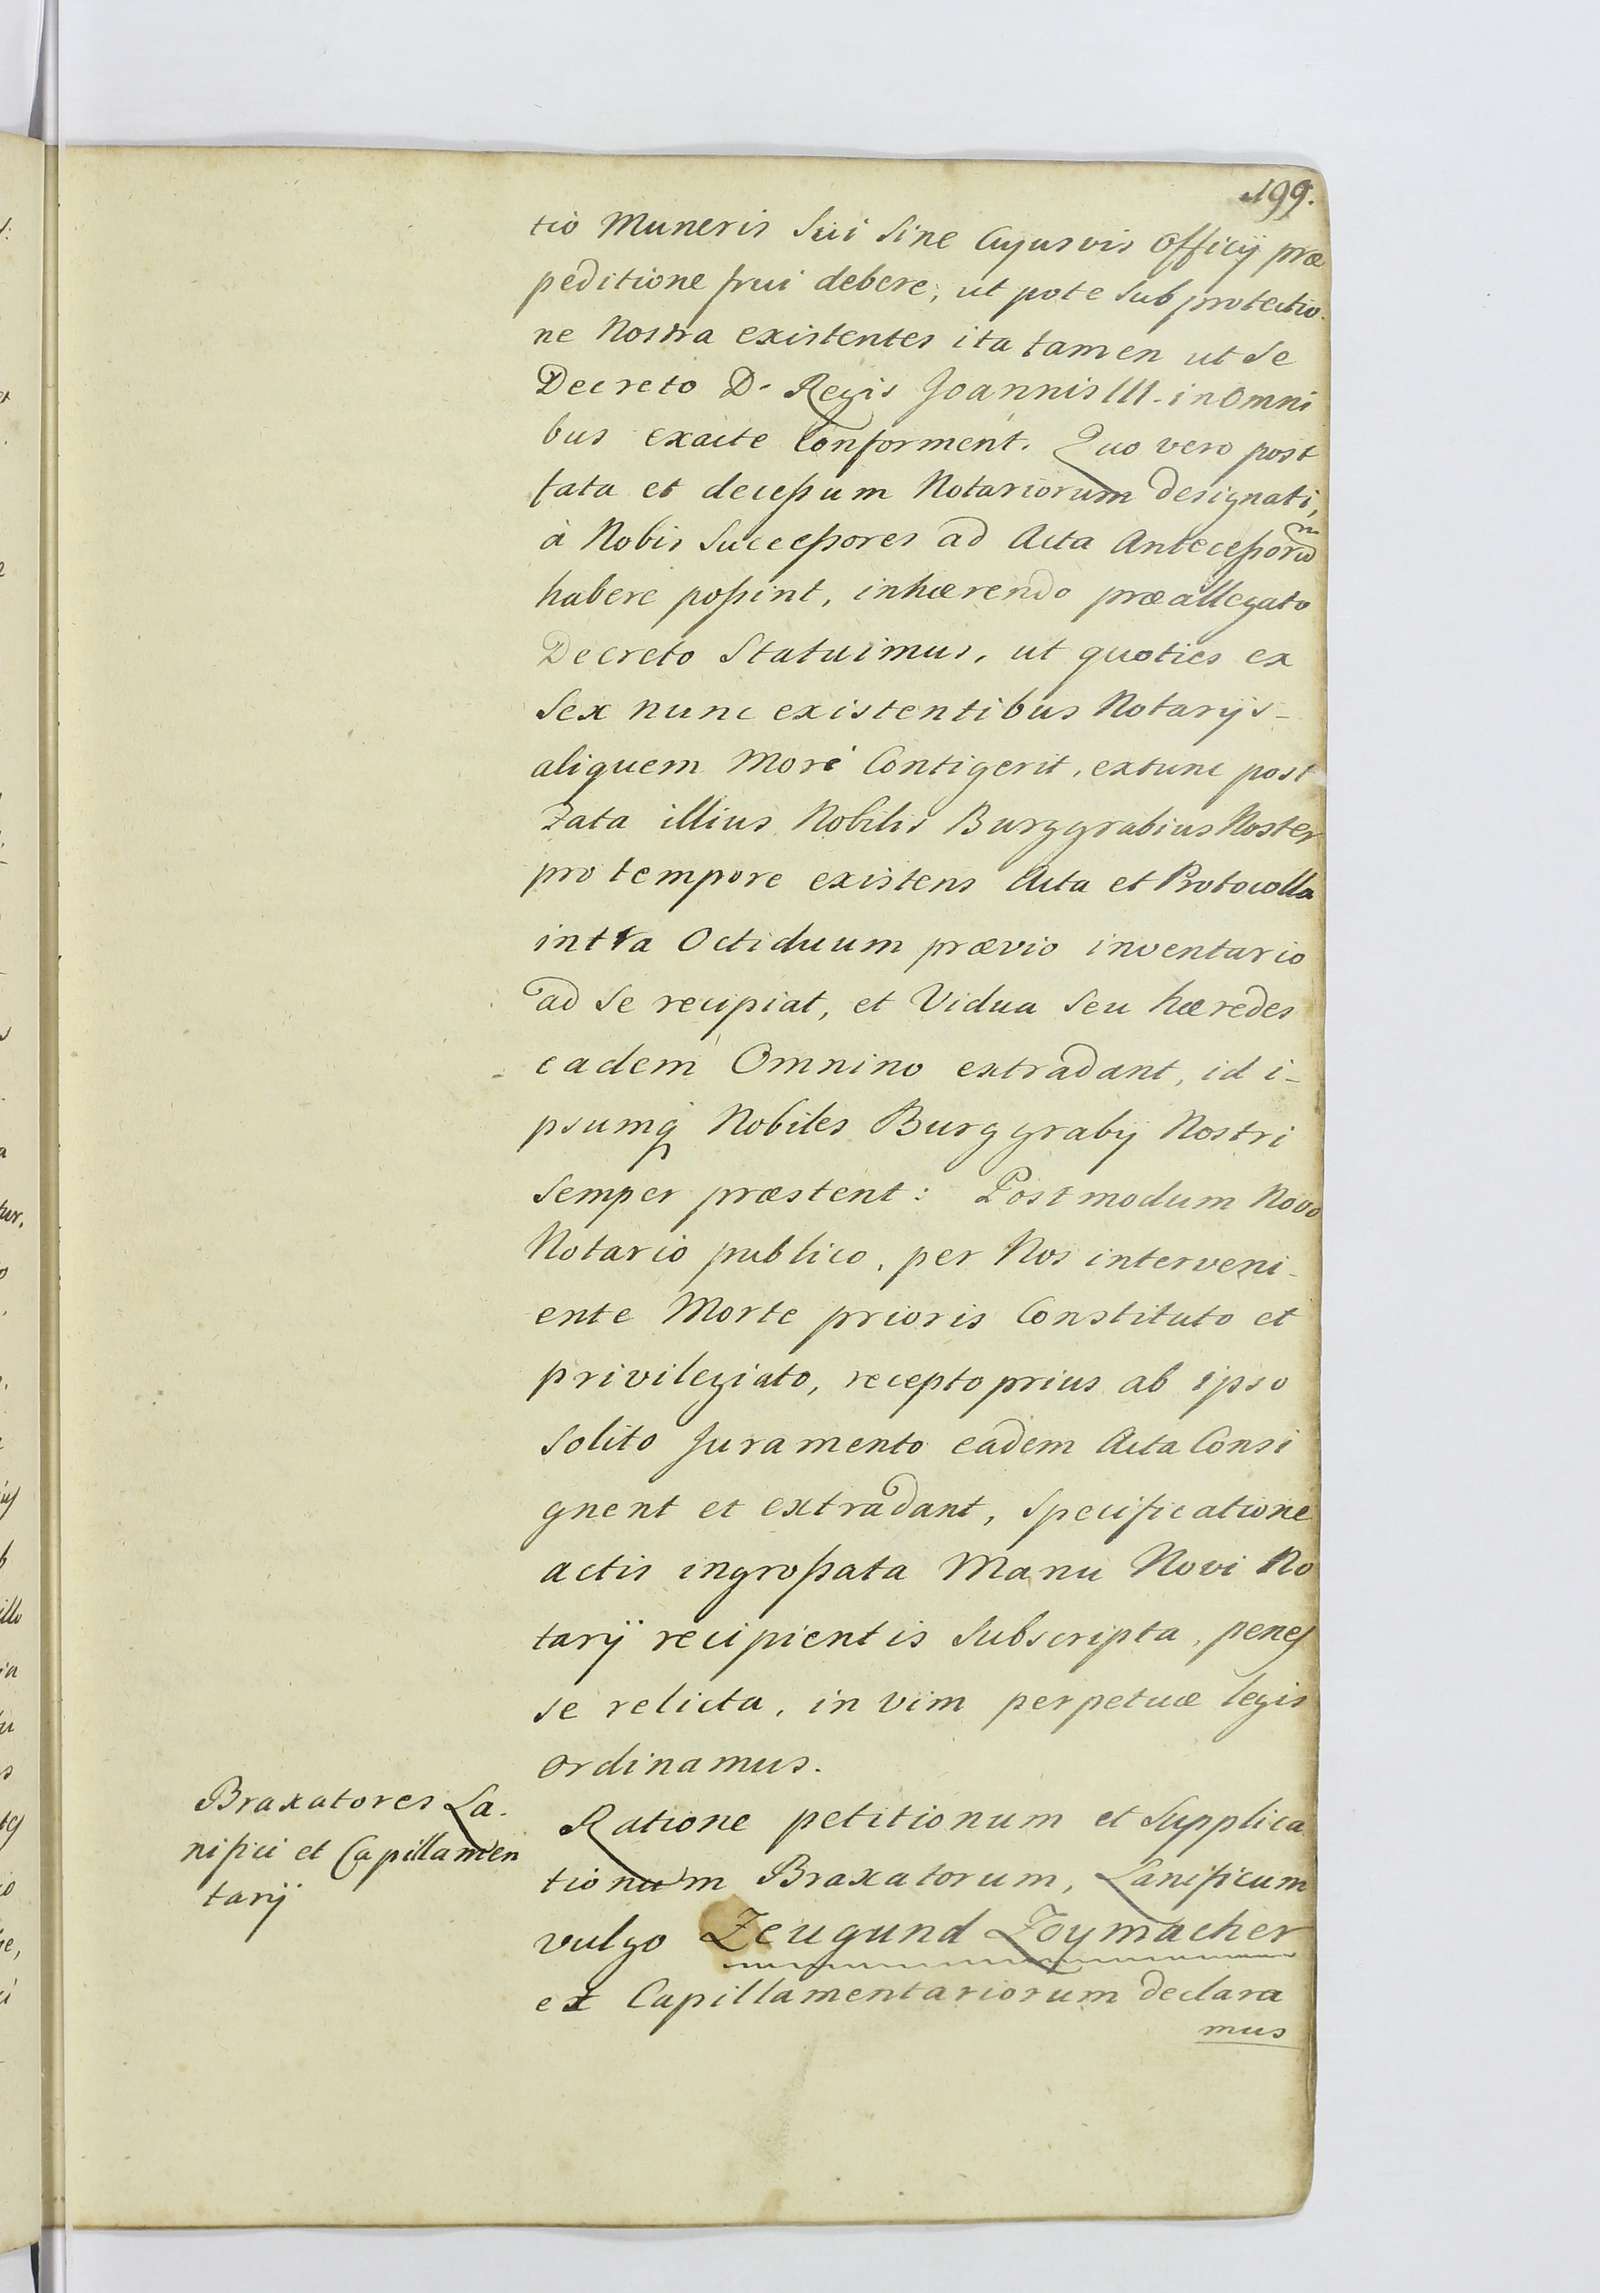 199.
tio Muneris Sui Sine Cujusvis Officij præ
peditione frui debere, ut pote Sub protectio-
ne Nostra existentes ita tamen ut Se
Decreto D. Regis Joannis III. in Omni
bus exacte Conforment. Quo vero post
fata et decessum Notariorum designati,
à Nobis Successores ad Acta Antecessorũ
habere possint, inhærendo præallegato
Decreto Statuimus, ut quoties ex
Sex nunc existentibus Notarijs
aliquem Mori Contigerit, extunc post
Fata illius Nobilis Burggrabius Noster
pro tempore existens Acta et Protocolla
intra Octiduum prævio inventario
ad Se recipiat, et Vidua Seu hæredes
eadem Omnino extradant, id i-
psumq Nobiles Burggrabij Nostri
Semper præstent: Postmodum Novo
Notario publico, per Nos interveni-
ente Morte prioris Constituto et
privilegiato, recepto prius ab ipso
Solito Juramento eadem Acta Consi
gnent et extradant, Specificatione
actis ingrossata Manu Novi No
tarij recipientis Subscripta, penes
se relicta, in vim perpetuæ legis
ordinamus.
Braxatores La-
nifici et Capillamen
tarij
Ratione petitionum et Supplica
tionum Braxatorum, Lanificum
vulgo Zeugund Zoymacher
et Capillamentariorum declara
mus